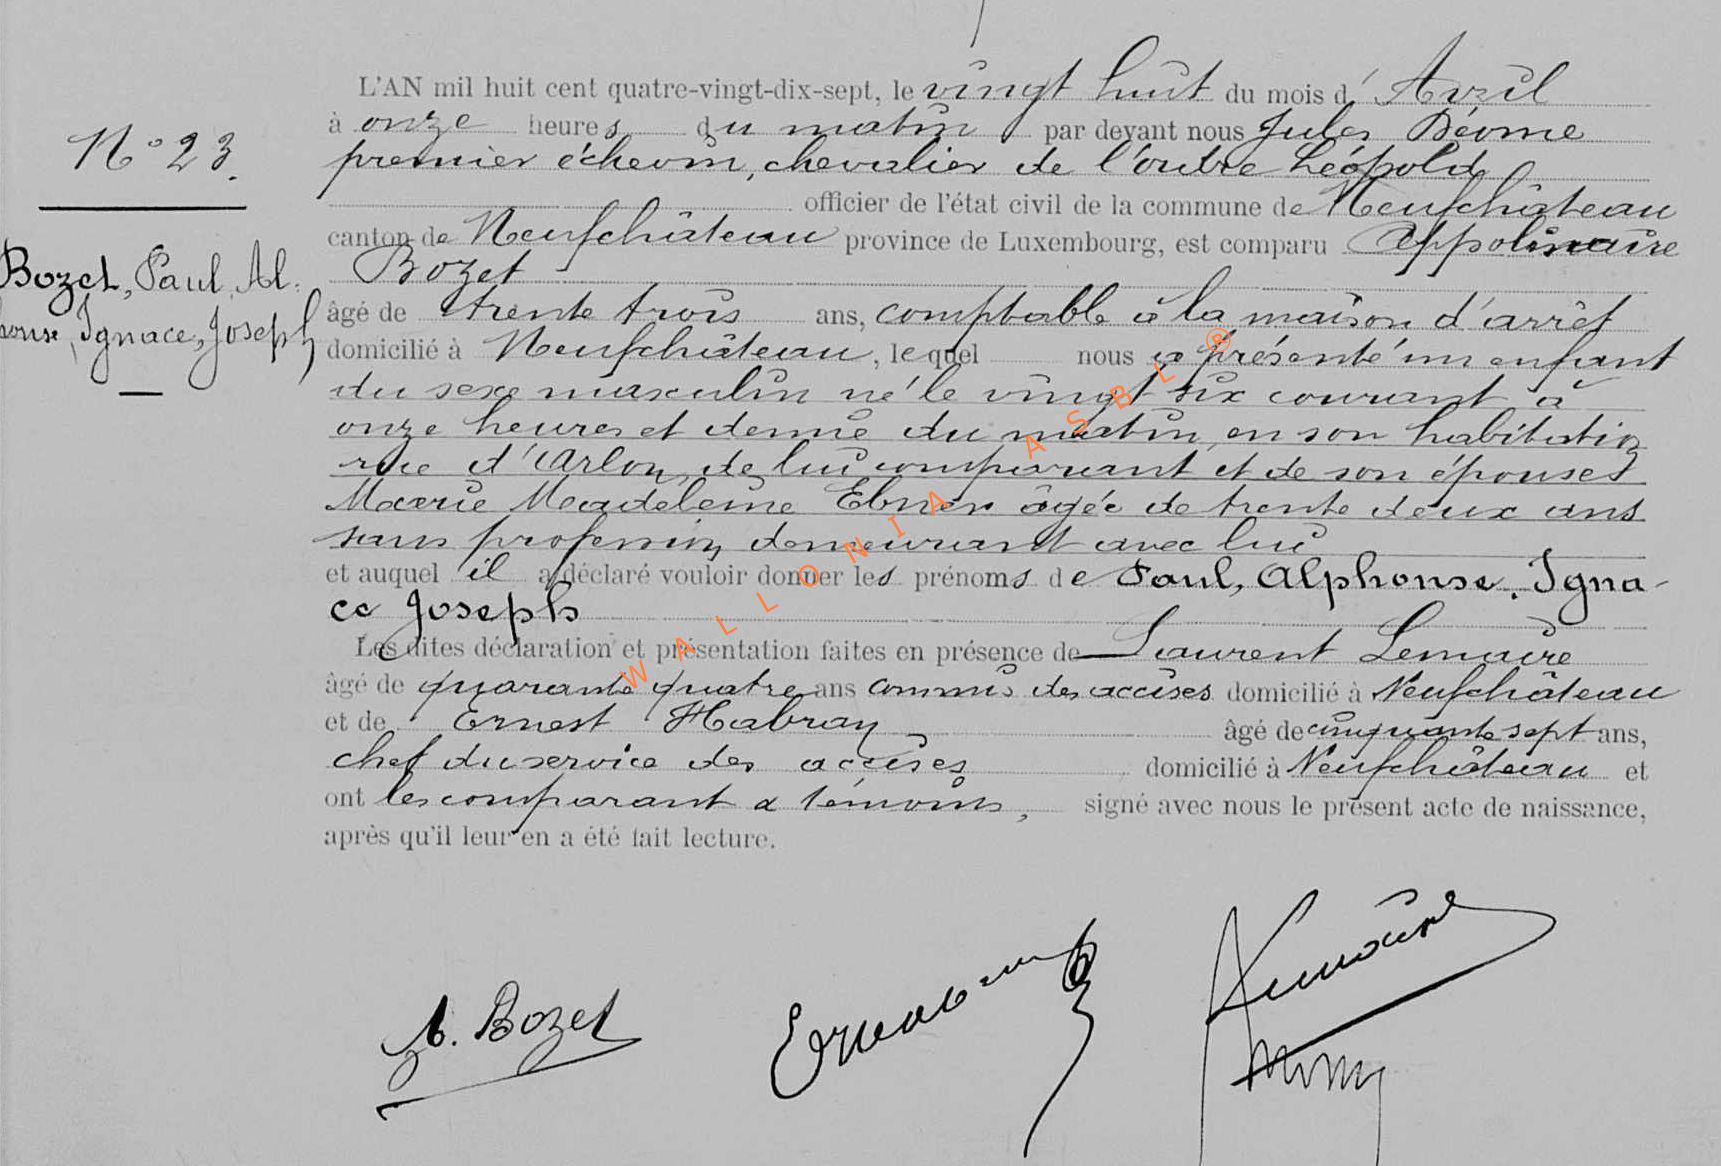 N° 23.
Bozet, Paul, Al-
phonse, Ignace, Joseph
L'AN mil huit cent quatre-vingt-dix-sept, le vingt huit du mois d'Avril
à onze heures du matin par devant nous Jules Déome
premier échevin, chevalier de l'ordre Léopold
officier de l'état civil de la commune de Neufchâteau
canton de Neufchâteau province de Luxembourg, est comparu Appolinaire
Bozet
âgé de trente trois ans, comptable à la maison d'arrêt
domicilié à Neufchâteau, lequel nous a présenté un enfant
du sexe masculin né le vingt six courant à
onze heures et demie du matin, en son habitation
rue d'Arlon, de lui comparant et de son épouses
Marie Madeleine Ebner âgée de trente deux ans
sans profession demeurant avec lui
et auquel il a déclaré vouloir donner les prénoms de Paul, Alphonse, Igna-
ce Joseph
Les dites déclaration et présentation faites en présence de Laurent Lemaire
âgé de quarante quatre ans commis des accises domicilié à Neufchâteau
et de Ernest Habray âgé de cinquante sept ans,
chef du service des accises domicilié à Neufchâteau et
ont les comparant & témoins, signé avec nous le présent acte de naissance,
après qu'il leur en a été fait lecture.
A. Bozet
WALLONIA ASBL ®